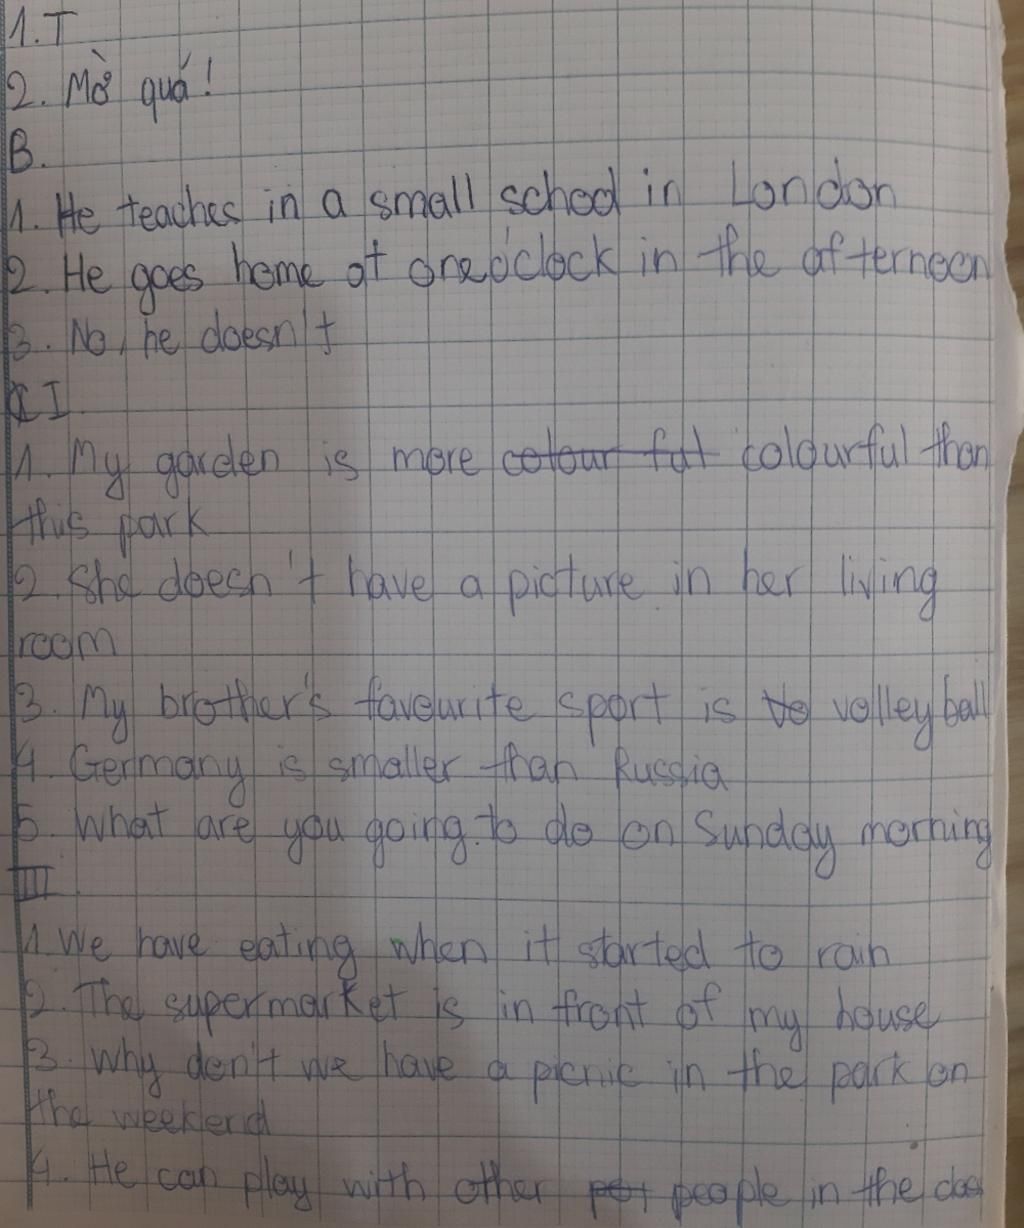 1. T
2. Mờ quá!
B.
1. He teaches in a small school in London
2. He goes home at one o'clock in the afternoon
3. No, he doesn't
II
1. My garden is more colour ful colourful than
this park
2. She doesn't have a picture in her living
room
3. My brother's favourite sport is vo volleyball
4. Germany is smaller than Russia
5. What are you going to do on Sunday morning
III
1. We have eating when it started to rain
2. The supermarket is in front of my house
3. Why don't we have a picnic in the park on
the weekend
4. He can play with other people in the